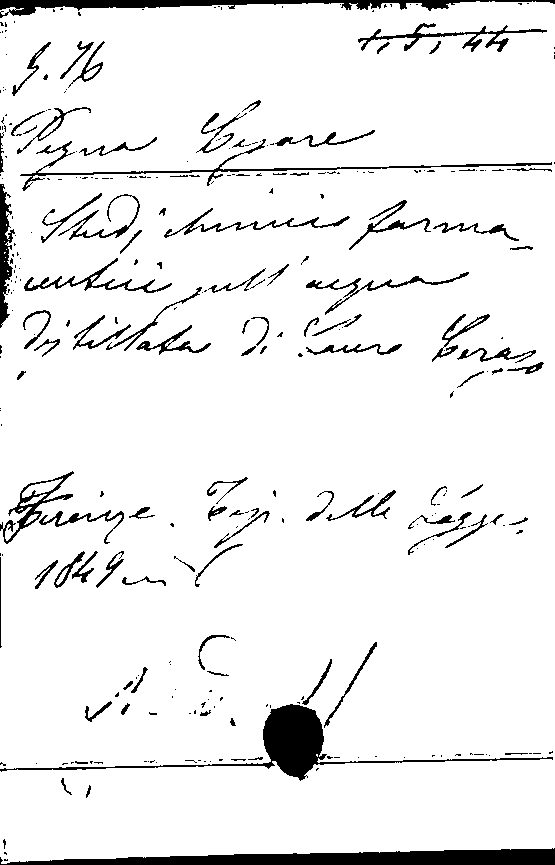 1, 5, 44
J. 76
Pegna Cesare
Studj chimici farma-
ceutici sull' acqua
distillata di Lauro Ceraso
Firenze. Tip. delle Logge.
1849 in